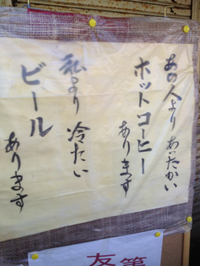 あの人よりあったかい
ホットコーヒー
あります
私より冷たい
ビール
あります